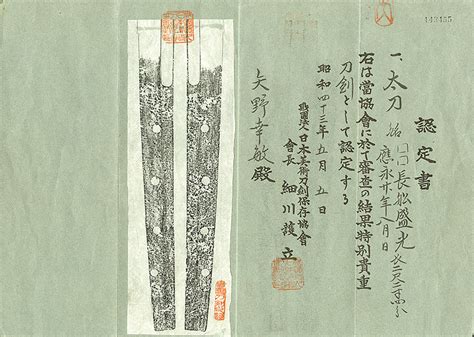 認定書
一、太刀 銘 □□長船盛光 長二尺三寸
應永廿年八月日
右は當協會に於て審査の結果特別貴重
刀劍として認定する
昭和四十三年五月五日
財團法人日本美術刀剣保存協會
會長 細川護立
矢野幸敏殿
143455